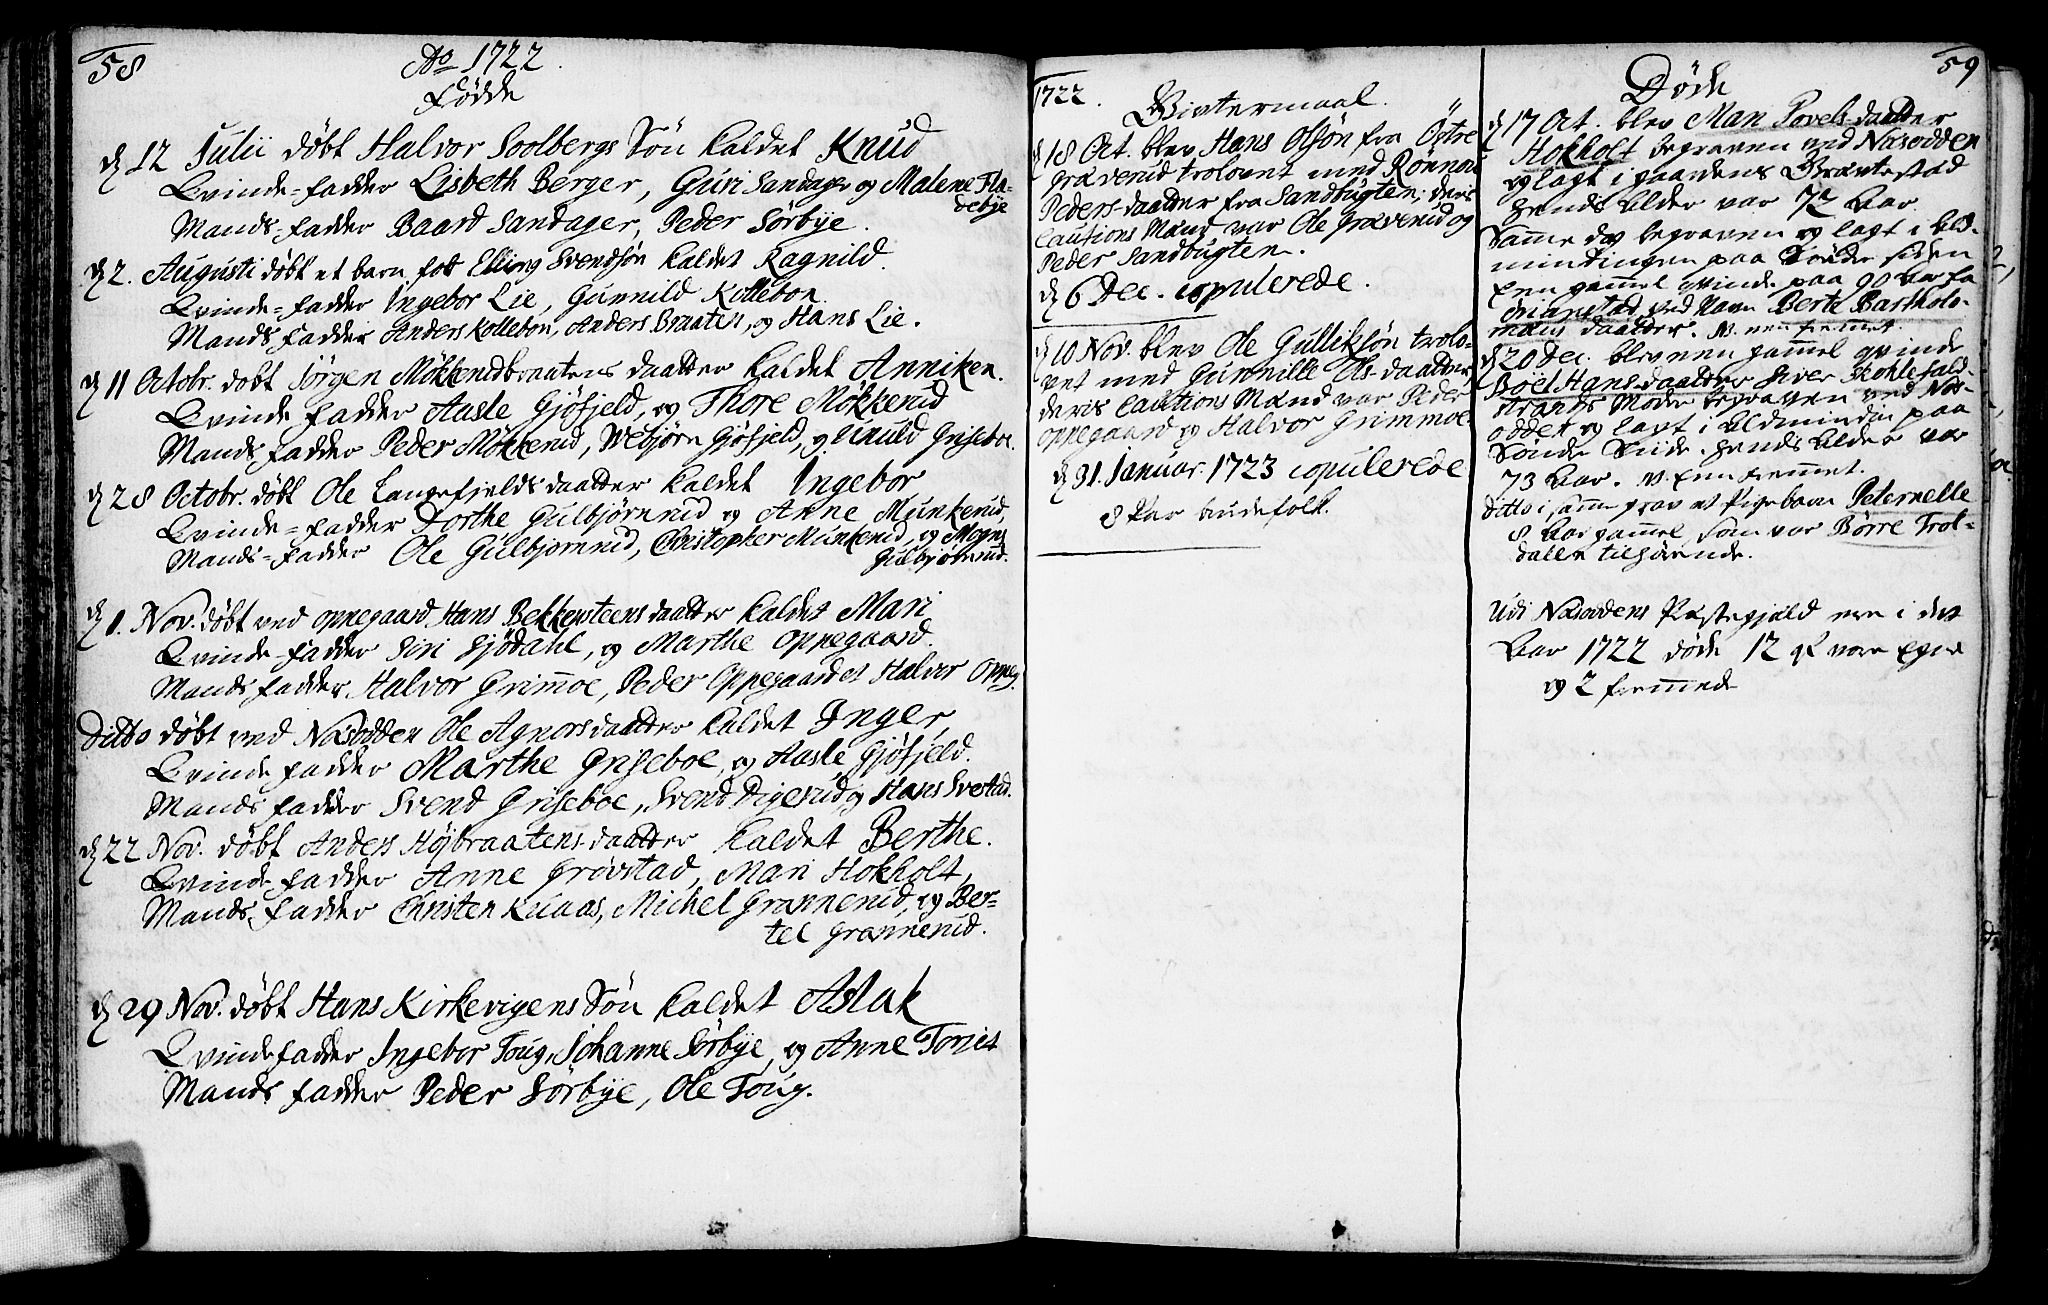 58
Ao 1722
Fødde
d 12 Julii døbt Halvor Soolbergs Søn kaldet Knud
Qvinde-fadder Lisbeth Berger, Guri Sandager og Malene Fla-
debye
Mands-fadder Baard Sandager, Peder Sørbye.
d 2. Augusti døbt et barn fob Elling Svendsøn kaldet Ragnild.
Qvinde-fadder Ingebor Lie, Gunnild Kollebon
Mands fadder Anders Kollebon, Anders Braaten, og Hans Lie.
d 11 Octobr. døbt Jørgen Møkkerudbraatens daatter kaldet Anniken.
Qvinde fadder Aasle Gjøfjeld, og Thore Møkkerud
Mands fadder Peder Møkkerud, Webjørn Gjøfjeld, og Griseboe.
d 28 Octobr. døbt Ole Langefjelds daatter kaldet Ingebor
Qvinde-fadder Dorthe Gulbjørnrud og Anne Munkerud,
Mands-fadder Ole Gulbjørnrud, Christopher Munkerud, og Mogns
Gulbjørnrud.
d 1. Nov. døbt ved oppegaard Hans Bekkensteens daatter kaldet Mari
Qvinde fadder Siri Sjødahl, og Marthe Oppegaard.
Mands fadder Halvor Grimoe, Peder Oppegaard et Halvor Oppeg.
Ditto døbt ved Nasodden Ole Agnors daatter kaldet Inger,
Qvinde fadder Marthe Griseboe, og Aasle Gjøfjeld.
Mands fadder Svend Griseboe, Svend Digerud og Hans Svestad.
d 22 Nov. døbt Anders Højbraatens daatter kaldet Berthe.
Qvinde fadder Anne Grøvstad, Mari Hokholt,
Mands fadder Christen Klaas, Michel Grannerud, og Ber-
tel Grannerud.
d 29 Nov. døbt Hans Kirkevigens Søn kaldet Aslak
Qvindefadder Ingebor Toug, Johanne Sørbye, og Anne Torjet
Mands fadder Peder Sørbye, Ole Toug.
1722.
d 18 Oct. blev Hans Olsøn fra Østre
Græverud trolovet med Ronnou
Peders-daatter fra Sandbugten; deris
Cautions Mænd var Ole Græverud og
Peder Sandbugten.
d 6 Dec. copulerede.
d 10 Nov. blev Ole Gulliksøn trolo-
vet med Gunnille Ols-daatter,
deris Cautions Mænd var Peder
oppegaard og Halvor Grimmoe.
d 31. Januar: 1723 copulerede
8 Par brudefolk.
59
Døde
d 17 Oct. blev Mari Povels-daatter
Hokholt begraven ved Nasodden
og lagt i gaardens Gravsted
hends Alder var 72 Aar
Samme dag begraven og lagt i Al-
mindingen paa Søndre siden
Een gammel qvinde paa 90 Aar fra
ved Navn Berte Bartholo-
mæus daatter. N. een fremmet.
d 20 Dec. blev een gammel qvinde
Boel Hans-daatter Iver Skohlefald-
strands Moder begraven ved Nas-
odden og lagt i Almindin paa
Søndre Siide. hends Alder var
73 Aar. N. Een fremmet.
ditto i samme grav et Pige barn Peternelle
8 Aar gammel som var Børre Trol-
dalle tilhørende.
Udi Nasoddens Præstegjeld ere i det
Aar 1722 døde 12 af vore egne
og 2 fremmede